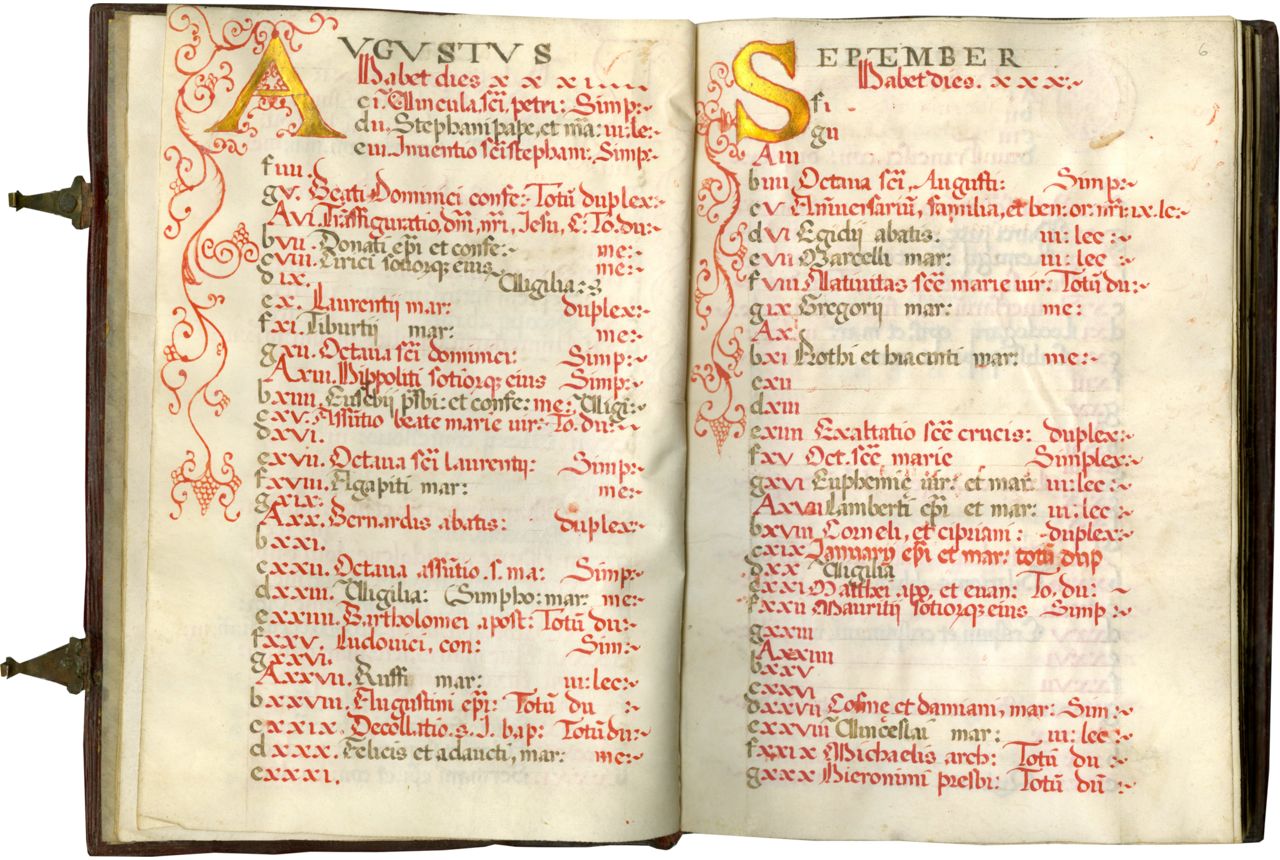 AVGVSTVS
Habet dies x x x i
c i. Vincula scī, petri: Simp:~
d ii. Stephani pape, et mā: iii: le:~
e iii. Inventio scī stephani: Simp:~
f iiii.
g v. Beati Dominici confe: Totū duplex:~
A vi. Trāsfiguratio, dnī, nrī, Jesu, To: du:~
b vii. Donati epī et confe:~ me:~
c viii. Cirici sotiorq; eius me:~
d ix. Vigilia:~
e x. Laurentij mar: duplex:~
f xi. Tiburtij mar: me:~
g xii. Octaua scī dominici: Simp:~
A xiii. Hippoliti sotiorq; eius Simp:~
b xiiii. Eusebij psbi: et confe: me:~ Vigi:~
c xv. Assūtio beate marie uir: To. du:~
d xvi.
e xvii. Octaua scī laurentij: Simp:~
f xviii. Agapiti mar: me:~
g xix.
A xx. Bernardis abatis: duplex:~
b xxi.
c xxii. Octaua assūtio. s. ma: Simp:~
d xxiii. Vigilia: Simpho: mar: me:~
e xxiiii. Bartholomei apost: Totū du:~
f xxv. Ludouici, con: Sim:~
g xxvi.
A xxvii. Ruffi mar: iii: lec:~
b xxviii. Augustini epī: Totū du :~
c xxix. Decollatio. s. J. bap: Totū du:~
d xxx. Felicis et adaucti, mar: me:~
e xxxi.
SEPTEMBER
6
Habet dies. x x x:~
f i
g ii
A iii
b iiii Octaua scī, Augusti: Simp:~
c v Anīuersariū, familia, et ben: or: nrī: ix. lc:~
d vi Egidij abatis: iii: lec:~
e vii Marcelli mar: iii: lec:~
f viii Natiuitas scē marie uir: Totū du:~
g ix Gregorij mar: me:~
A x
b xi Prothi et hiacinti mar: me:~
c xii
d xiii
e xiiii Exaltatio scē crucis: duplex:~
f xv Oct. scē marie Simplex:~
g xvi Euphemie uir: et mar: iii: lec:~
A xvii Lamberti epī et mar: iii: lec:~
b xviii Corneli, et cipriani: duplex:~
c xix Januarij epī et mar: totū dup
d xx Vigilia
e xxi Matthei apo, et euan: To. du:~
f xxii Mauritij sotiorq; eius Simp:~
g xxiii
A xxiiii
b xxv
c xxvi
d xxvii Cosme et damiani, mar: Sim:~
e xxviii Vinceslai mar: iii: lec:~
f xxix Michaelis arch: Totū du
g xxx Hieronimi presbi: Totū dū:~